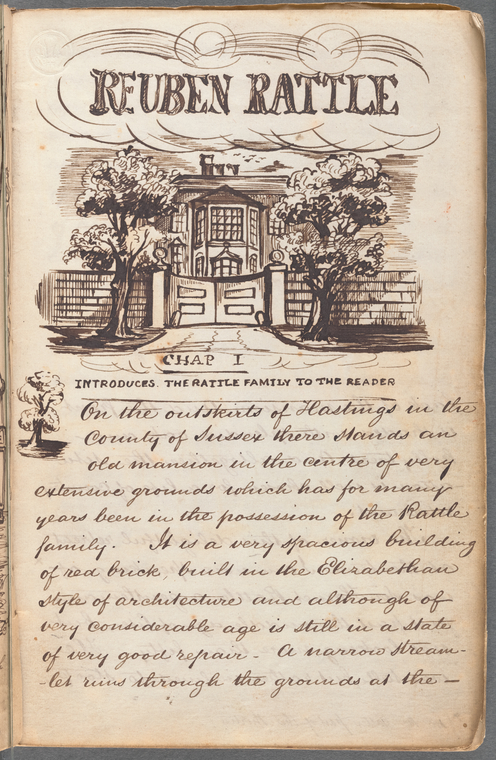 REUBEN RATTLE
CHAP I
INTRODUCES. THE RATTLE FAMILY TO THE READER
On the outskirts of Hastings in the
County of Sussex there stands an
old mansion in the centre of very
extensive grounds which has for many
years been in the possession of the Rattle
family. It is a very spacious building
of red brick, built in the Elizabethan
style of architecture and although of
very considerable age is still in a state
of very good repair - A narrow stream-
-let runs through the grounds at the —